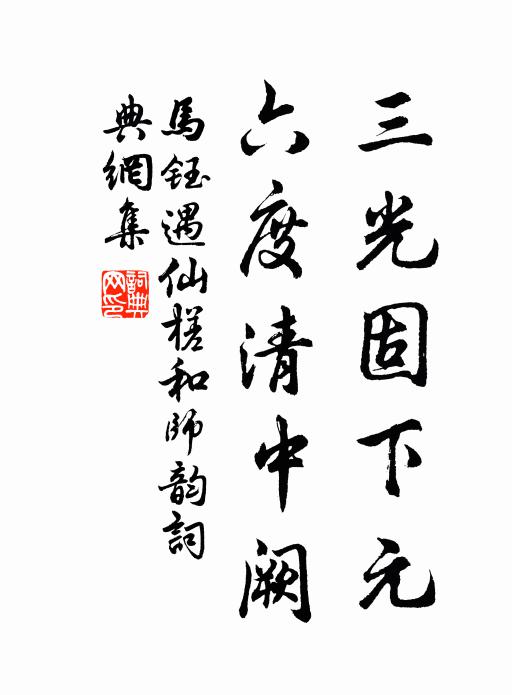 三光固下元
六度清中阙
馬鈺遇仙槎和師韵詞
典網集
詞典網印